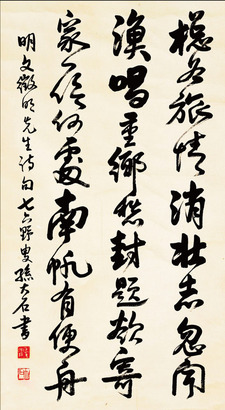 摠為旅情消壯志忽聞
漁唱重鄉愁封題欲寄
家人信何處南帆有便舟
明文徵明先生詩句七六野叟孫大石書